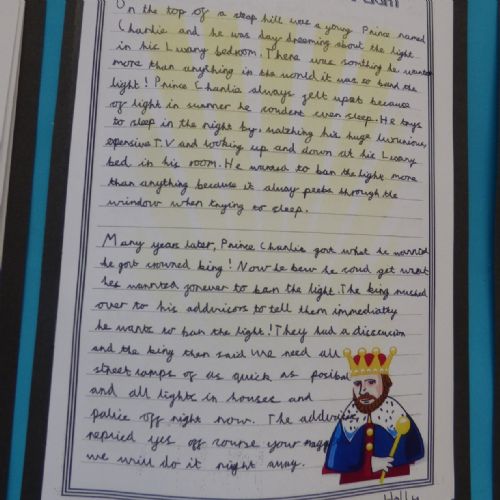 On the top of a steep hill was a young Prince named
Charlie and he was day dreaming about the light
in his Luxary bedroom. There was somthing he wanted
more than anything in the world it was to band the
light! Prince Charlie always felt upet because
of light in summer he coudent even sleep. He trys
to sleep in the night by, watching his huge luxurious,
expensive T.V and looking up and down at his Luxary
bed in his room. He wanted to ban the light more
than anything because it alway peeks through the
window when trying to sleep.
Many years later, Prince Charlie got what he wannted
he got crowned king! Now he knew he coud get what
hes wannted forever to ban the light. The king rushed
over to his addvisors to tell them immediatly
he wants to ban the light! They had a disscussion
and the king then said we need all
street lamps of as quick as posibal
and all lights in houses and
palice off right now. The addvisors
replied yes off course your
we will do it right away.
Holly